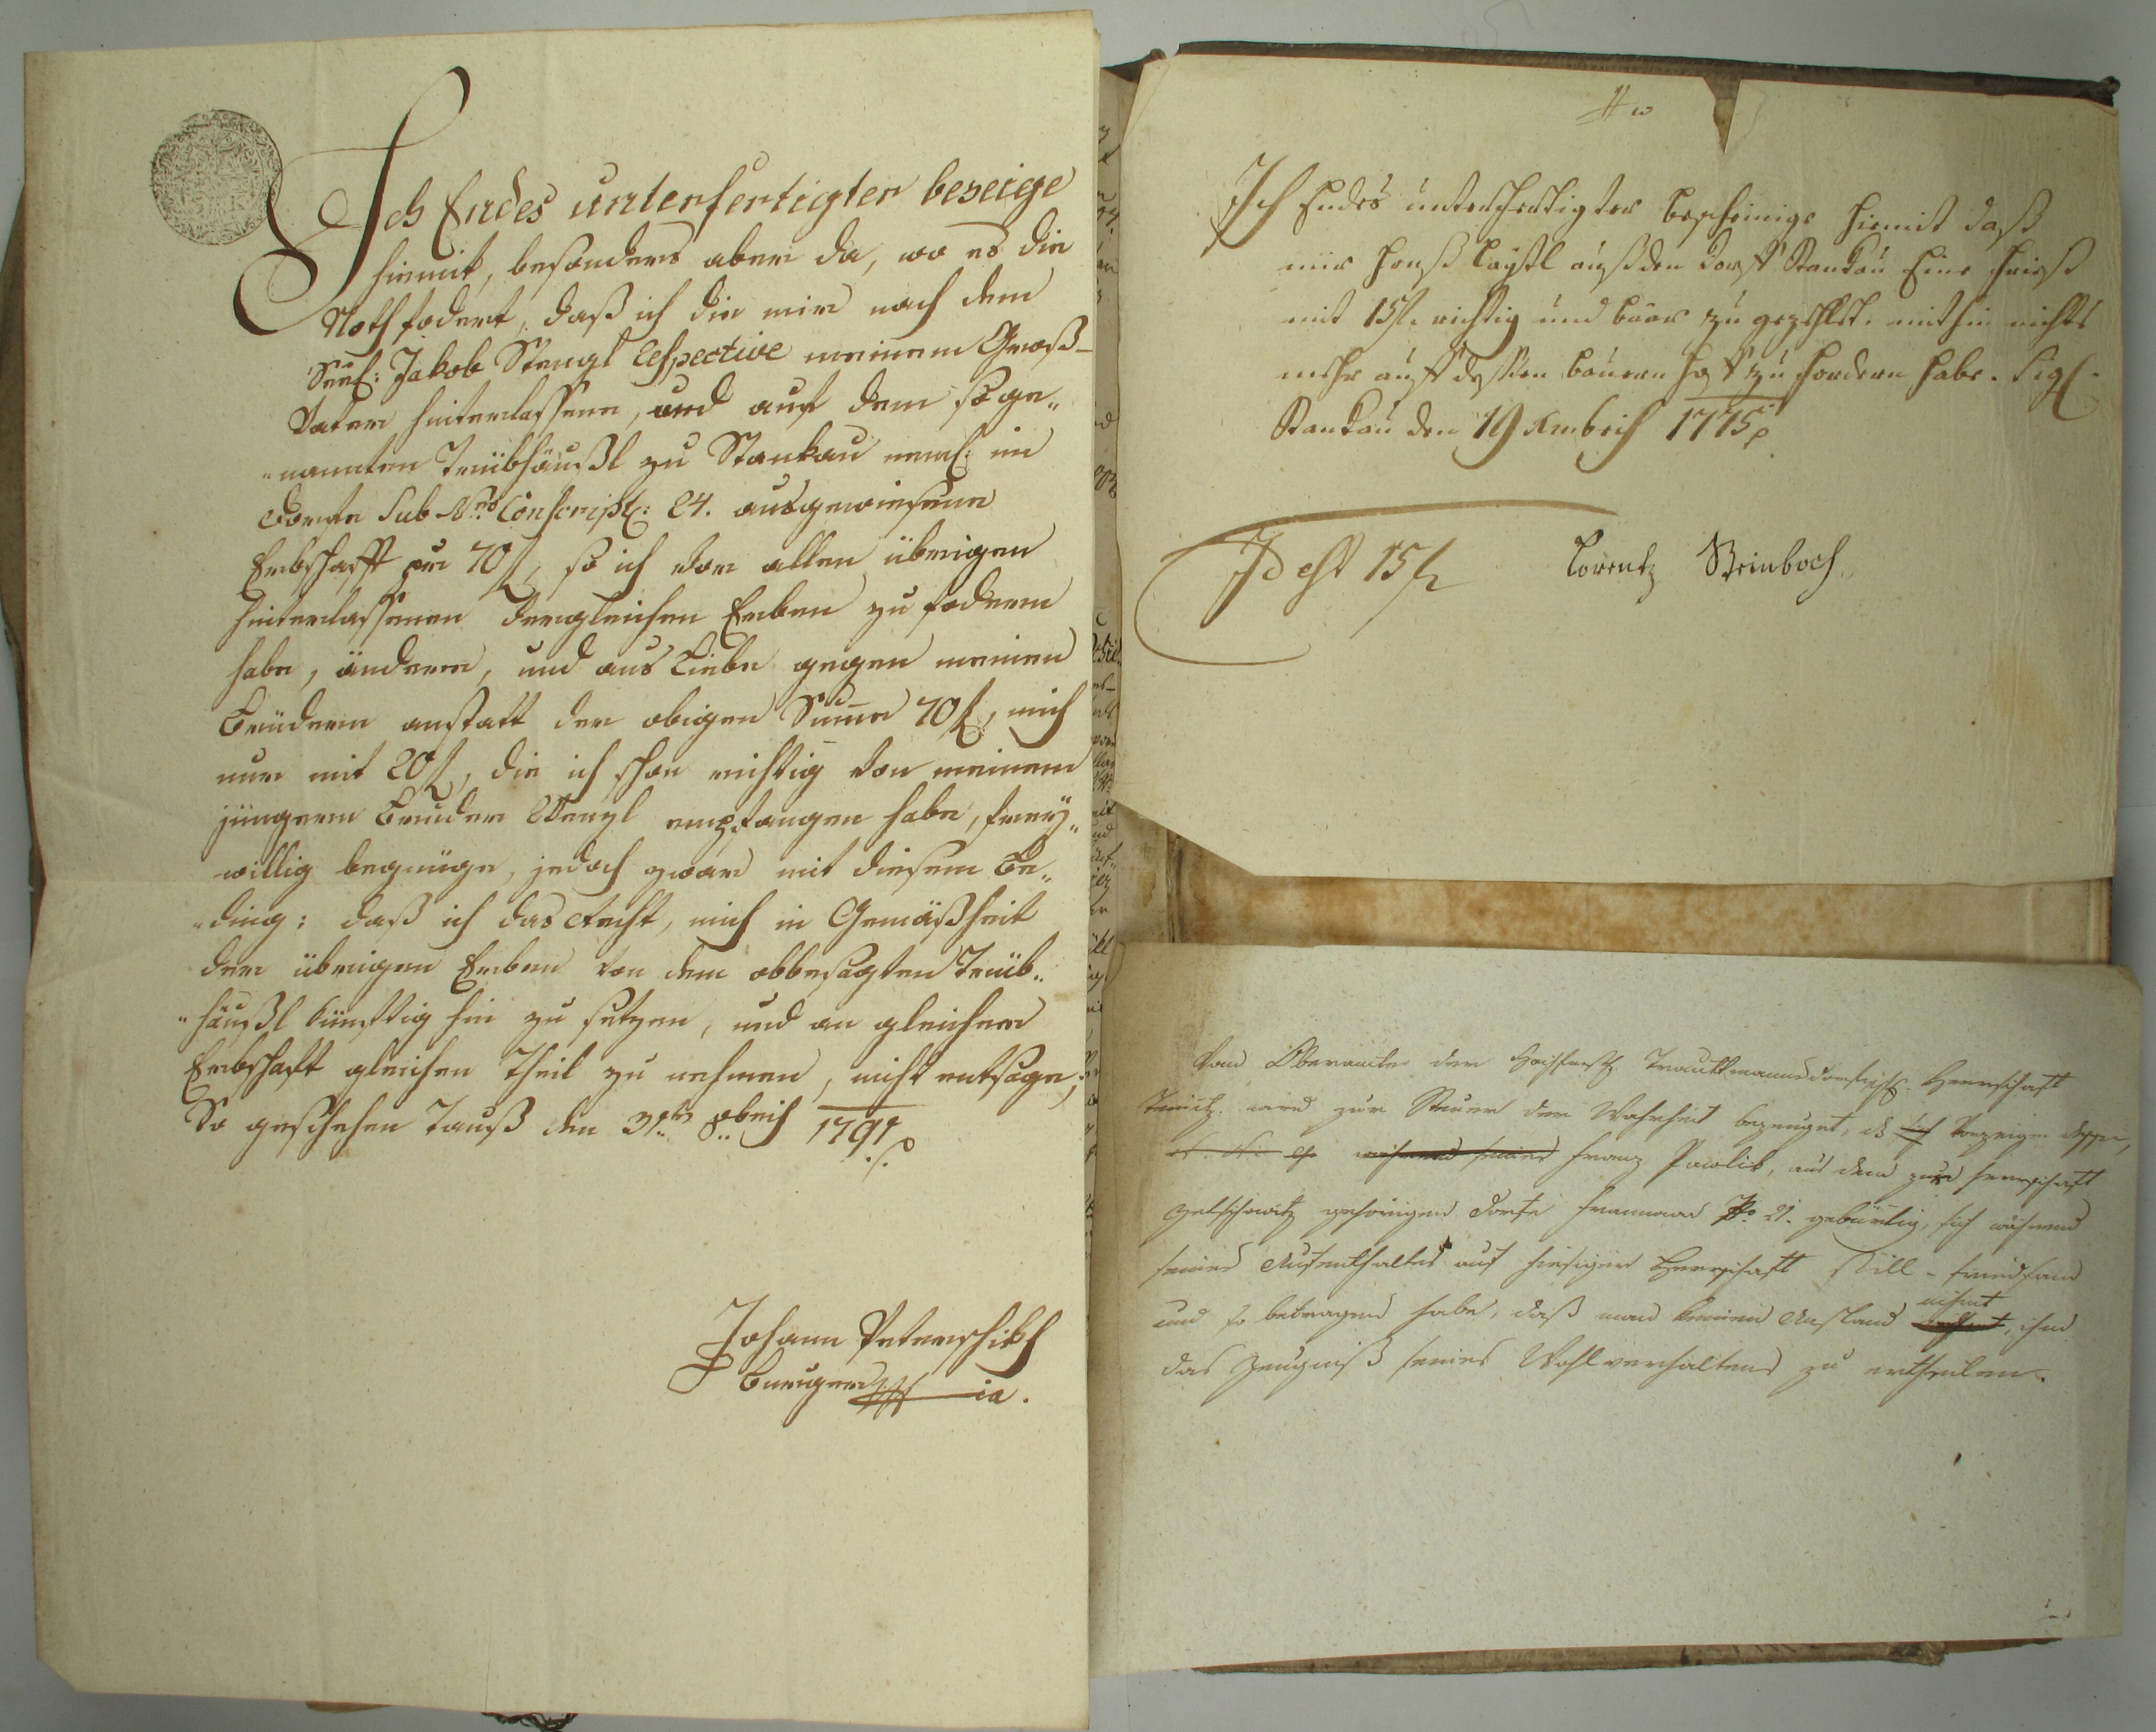 Ich Endes unterfertigter bezeige
hiemit, besonders aber da, wo es die
Noth fodert, daß ich die mir nach dem
Seel: Jakob Stengl respective meinem Groß-
Vater hinterlassene, und auf dem soge„
„nannten Trübhäußl zu Stankau neml: im
Dorfe Sub Nro Conscript: 24. ausgewiesene
Erbschafft per 70 f, so ich von allen übrigen
hinterlassenen dergleichen Erben zu fodern
habe, ändere, und aus Liebe gegen meinen
Brüdern anstatt der obigen Summe 70 f, mich
nur mit 20 f, die ich schon richtig von meinem
jüngern Bruder Wenzl empfangen habe, frey„
willig begnüge, jedoch zwar mit diesem Be„
„ding: daß ich das Recht, mich in Gemäßheit
der übrigen Erben von dem obbesagten Trüb„
„häußl künftig hin zu setzen, und an gleicher
Erbschaft gleichen Theil zu nehmen, nicht entsage;
So geschehen Tauß den 31ten 8breich 1791
Johann Peterschikh
Burger
Ich Endes unterfertigter bescheinige hiemit daß
mir Hanß außden dorff Stankau Eine
mit 15 f. richtig und baar zu gezehlet. mithin nichts
mehr auff dessen bauern hoff zu fordern habe. Sigl.
Stankau den 19 1775
Id est 15 f Lorentz Steinbach
Vom Oberamte der Hochfürstl. Trauttmannsdorfischen Herrschaft
wird zur Steuer der Wahrheit bezeuget, daß Vorzeiger dessen,
während seines Franz Pawlik, aus dem zur Herrschaft
gehörigen Dorfe No 21. gebürtig, sich während
seines Aufenthaltes auf hiesiger Herrschaft still - friedsam
und so betragen habe, daß man keinen Anstand nihmt, ihm
das Zeugniß seines Wohlverhaltens zu ertheilen.